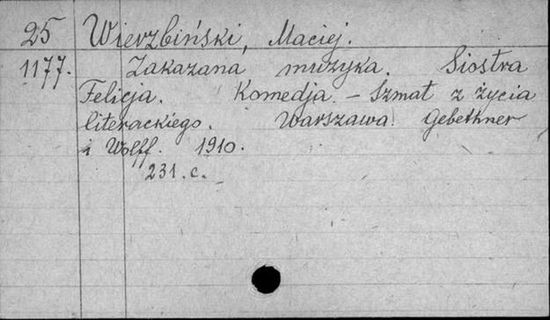 25 Wierzbiński, Maciej.
1177. Zakazana muzyka. Siostra
Felicja. Komedja. – Szmat z życia
literackiego. Warszawa. Gebethner
i Wolff. 1910.
231. c.